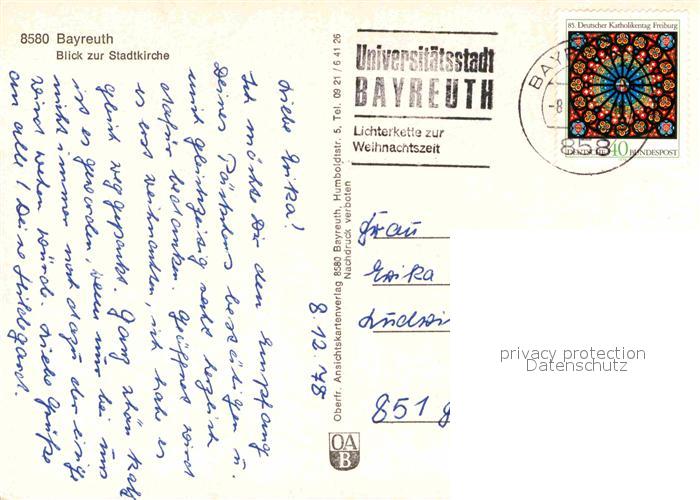 8580 Bayreuth
Blick zur Stadtkirche
Universitätsstadt
BAYREUTH
Lichterkette zur
Weihnachtszeit
85. Deutscher Katholikentag Freiburg
DEUTSCHE 40 BUNDESPOST
BAYR
-8
858
Liebe Erika!
Ich möchte Dir den Empfang
Deines Päckchens bestätigen u.
mich gleichzeitig recht herzlich
dafür bedanken. Geöffnet wird
es erst Weihnachten, ich habe es
gleich weggepackt. Ganz schön kalt
ist es geworden, wenn nur bei uns
nicht immer noch dazu der eisige
Wind wehen würde. Liebe Grüße
an alle! Deine Hildegard.
8.12.78
Oberfr. Ansichtskartenverlag 8580 Bayreuth, Humboldtstr. 5, Tel. 09 21 / 6 41 26
Nachdruck verboten
OA
B
Frau
Erika
Ludwi
851
privacy protection
Datenschutz